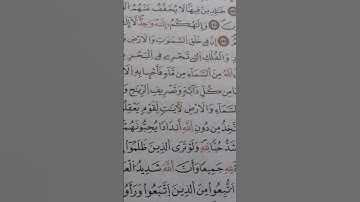 خَٰلِدِينَ فِيهَا لَا يُخَفَّفُ عَنْهُمُ
وَإِلَٰهُكُمْ إِلَٰهٌ وَٰحِدٌ لَّا إِ
إِنَّ فِي خَلْقِ السَّمَٰوَٰتِ وَالْأَرْضِ
وَالْفُلْكِ الَّتِي تَجْرِي فِي الْبَحْرِ
اللَّهُ مِنَ السَّمَاءِ مِن مَّاءٍ فَأَحْيَا بِهِ الْ
مِن كُلِّ دَابَّةٍ وَتَصْرِيفِ الرِّيَٰحِ وَ
السَّمَاءِ وَالْأَرْضِ لَآيَٰتٍ لِّقَوْمٍ يَعْقِلُ
يَتَّخِذُ مِن دُونِ اللَّهِ أَندَادًا يُحِبُّونَهُمْ
أَشَدُّ حُبًّا لِّلَّهِ وَلَوْ تَرَى الَّذِينَ ظَلَمُوا
لِلَّهِ جَمِيعًا وَأَنَّ اللَّهَ شَدِيدُ الْعَ
اتُّبِعُوا مِنَ الَّذِينَ اتَّبَعُوا وَرَأَوُا